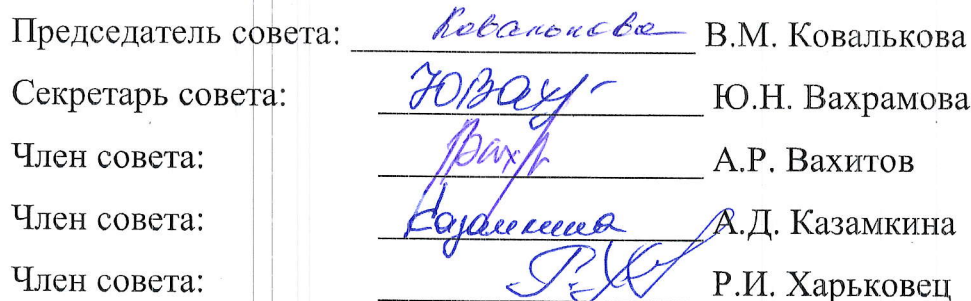 Председатель совета: Ковалькова В.М. Ковалькова
Секретарь совета: ЮВах Ю.Н. Вахрамова
Член совета: Вах А.Р. Вахитов
Член совета: Казамкина А.Д. Казамкина
Член совета: Р.И. Харьковец